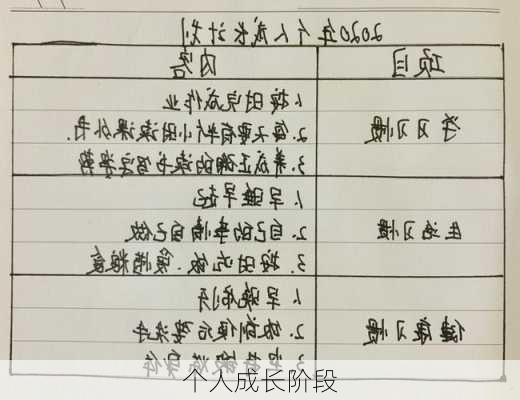 2020年个人成长计划
项目 内容
学习习惯
1. 按时完成作业
2. 每天要有半个小时读课外书.
3. 养成正确的读书写字姿势
生活习惯
1. 早睡早起
2. 自己的事情自己做
3. 按时吃饭.
健康习惯
1. 早晚刷牙
2. 饭前便后要洗手
3. 锻炼身体
个人成长阶段